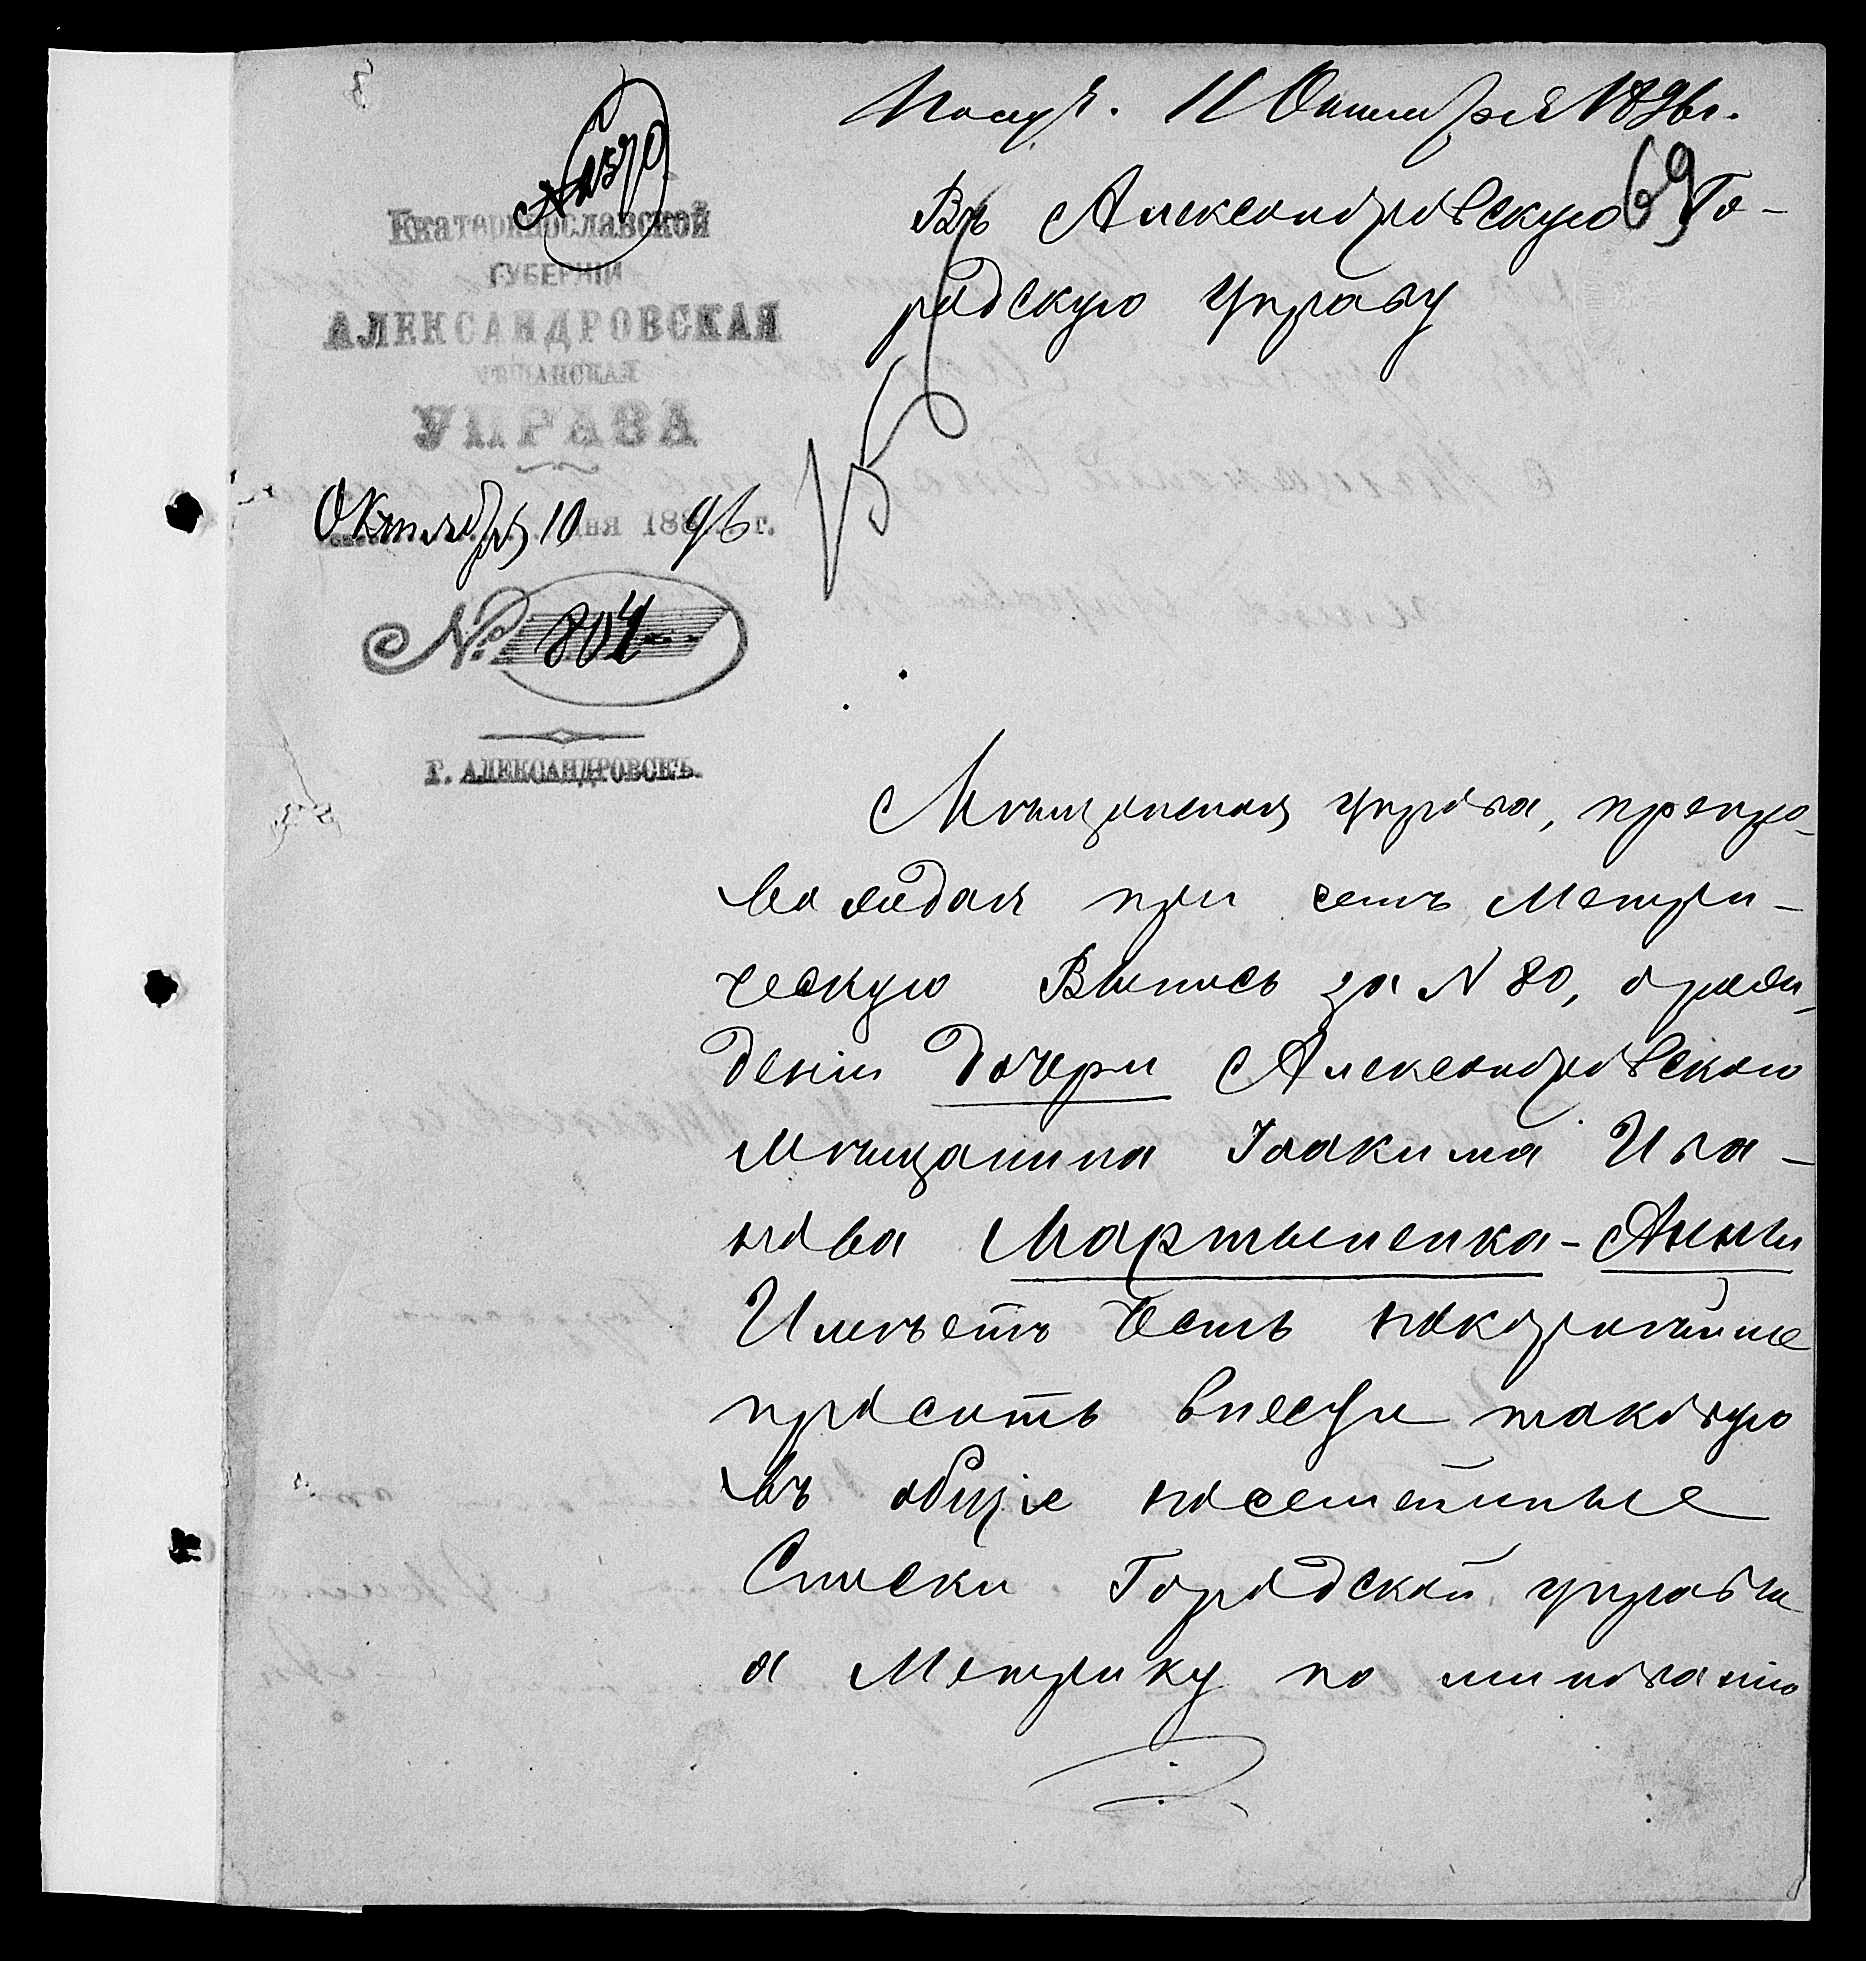 Получ. 11 Октября 1896 г.
69
№ 2570
Въ Александровскую Го-
родскую Управу
Екатеринославской
ГУБЕРНІИ
АЛЕКСАНДРОВСКАЯ
МѢЩАНСКАЯ
УПРАВА
Октября 10 дня 1896 г.
№ 804
Г. АЛЕКСАНДРОВСКЪ.
Мѣщанская управа, препро-
вождая при семъ Метри-
ческую Выпись за № 80, о рож-
деніи дочери Александровскаго
мѣщанина Іоакима Ива-
нова Мартыненка - Анны
Имѣетъ честь покорнѣйше
просить внести таковую
въ общіе посемейные
Списки Городской управы
а Метрику по минованію